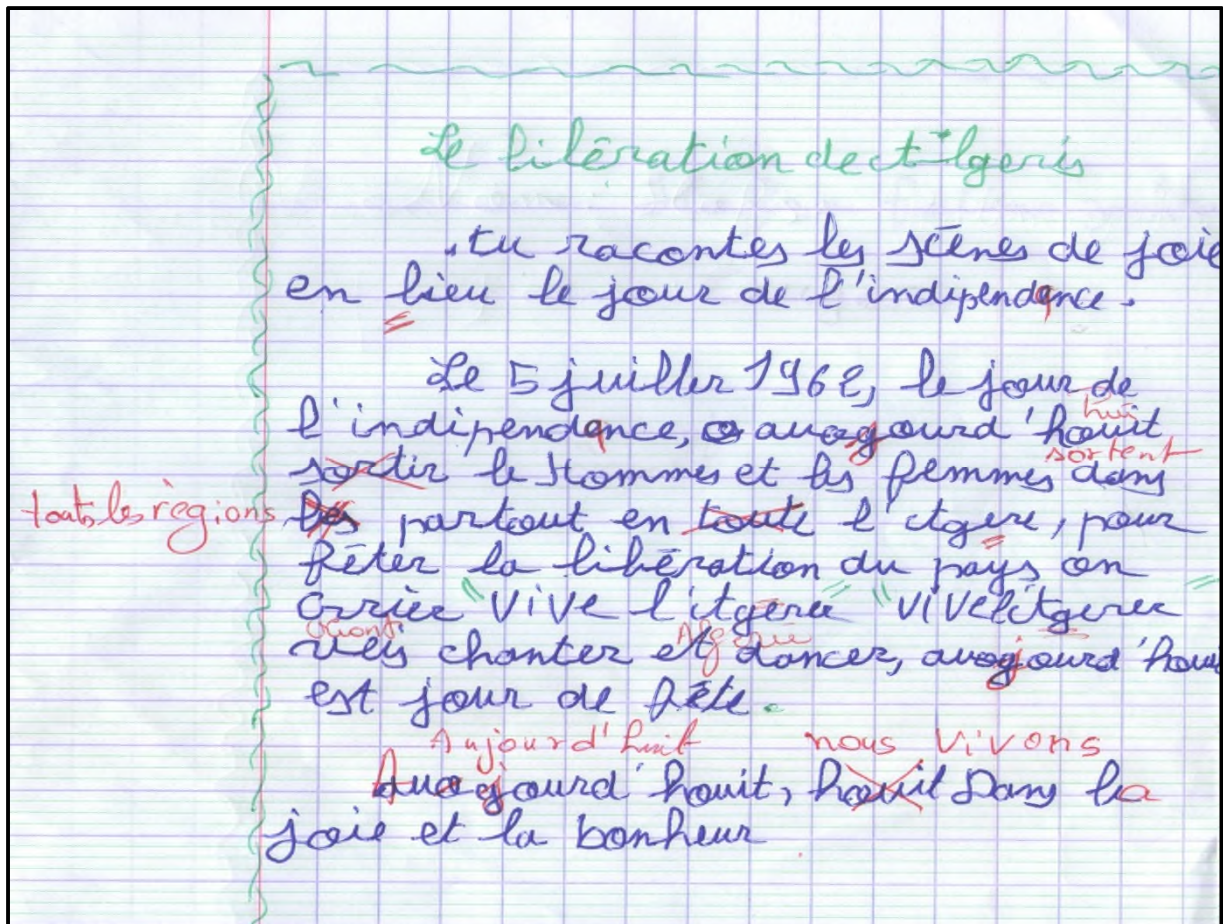 Le libération de
.tu racontes les scènes de joie
en lieu le jour de l'indipendance.
Le 5 juiller 1962, le jour de
l'indipendance, auogourd'houit
huit
sortent
sortir le Hommes et les femmes dans
touts les règions les partout en toute l'Algere, pour
fêter la libération du pays on
crriée "ViVe l'Algerée" "ViVe l'Algeree"
chanter et dancer, auogjourd'houi
Algerie
est jour de fête.
Aujourd'huit nous vivons
Auogjourd'houit, houit Dans la
joie et la bonheur